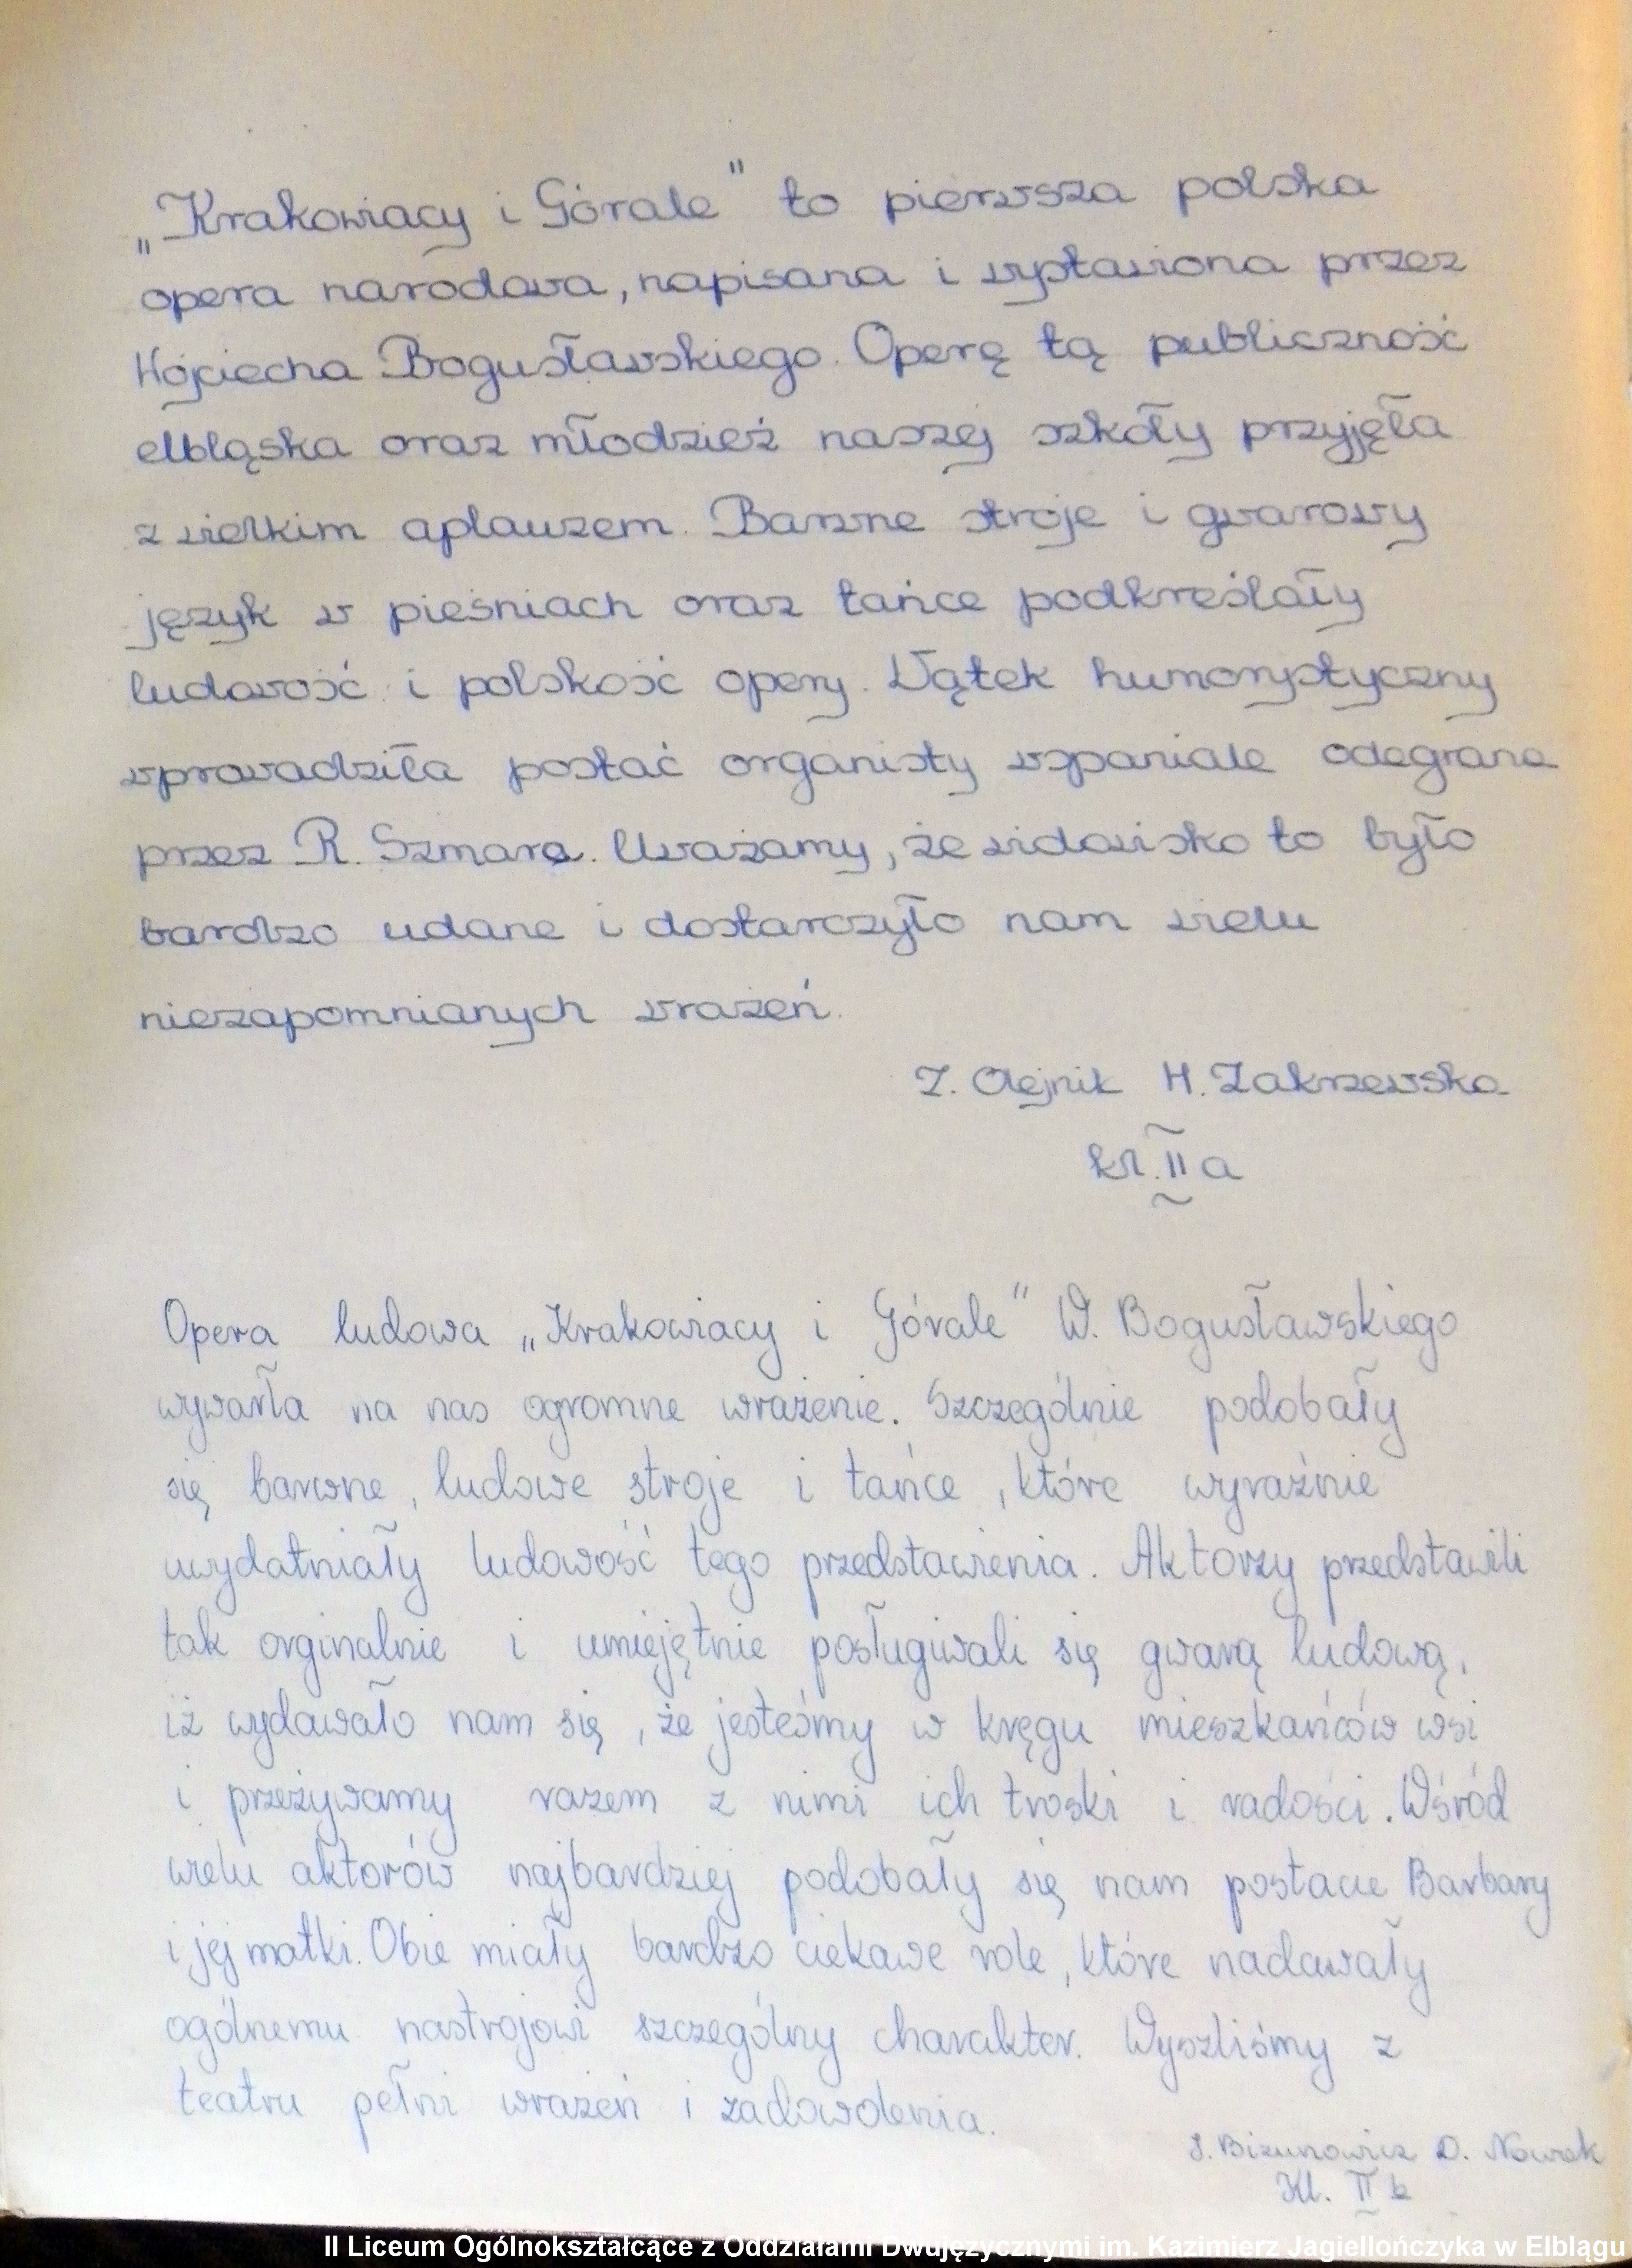 „Krakowiacy i Górale” to pierwsza polska
opera narodowa, napisana i wystawiona przez
Wojciecha Bogusławskiego. Operę tą publiczność
elbląska oraz młodzież naszej szkoły przyjęła
z wielkim aplauzem. Barwne stroje i gwarowy
język w pieśniach oraz tańce podkreślały
ludowość i polskość opery. Wątek humorystyczny
wprowadziła postać organisty wspaniale odegrana
przez R. Szmara. Uważamy, że widowisko to było
bardzo udane i dostarczyło nam wielu
niezapomnianych wrażeń.
Z. Olejnik H. Zakrzewska
kl. II a
Opera ludowa „Krakowiacy i Górale” W. Bogusławskiego
wywarła na nas ogromne wrażenie. Szczególnie podobały
się barwne, ludowe stroje i tańce, które wyraźnie
uwydatniały ludowość tego przedstawienia. Aktorzy przedstawili
tak orginalnie i umiejętnie posługiwali się gwarą ludową,
iż wydawało nam się, że jesteśmy w kręgu mieszkańców wsi
i przeżywamy razem z nimi ich troski i radości. Wśród
wielu aktorów najbardziej podobały się nam postacie Barbary
i jej matki. Obie miały bardzo ciekawe role, które nadawały
ogólnemu nastrojowi szczególny charakter. Wyszliśmy z
teatru pełni wrażeń i zadowolenia.
J. Bizunowicz D. Nowak
Kl. II b
II Liceum Ogólnokształcące z Oddziałami Dwujęzycznymi im. Kazimierz Jagiellończyka w Elblągu